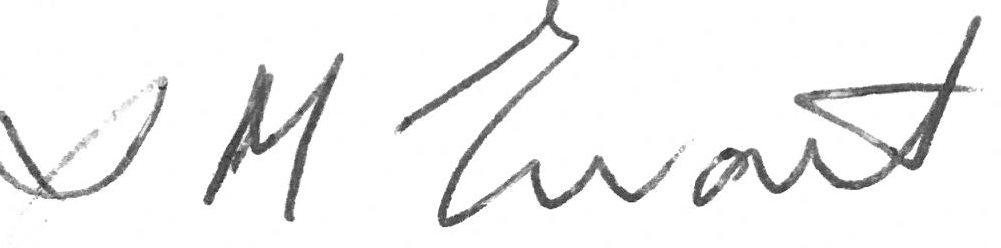 M Ewart